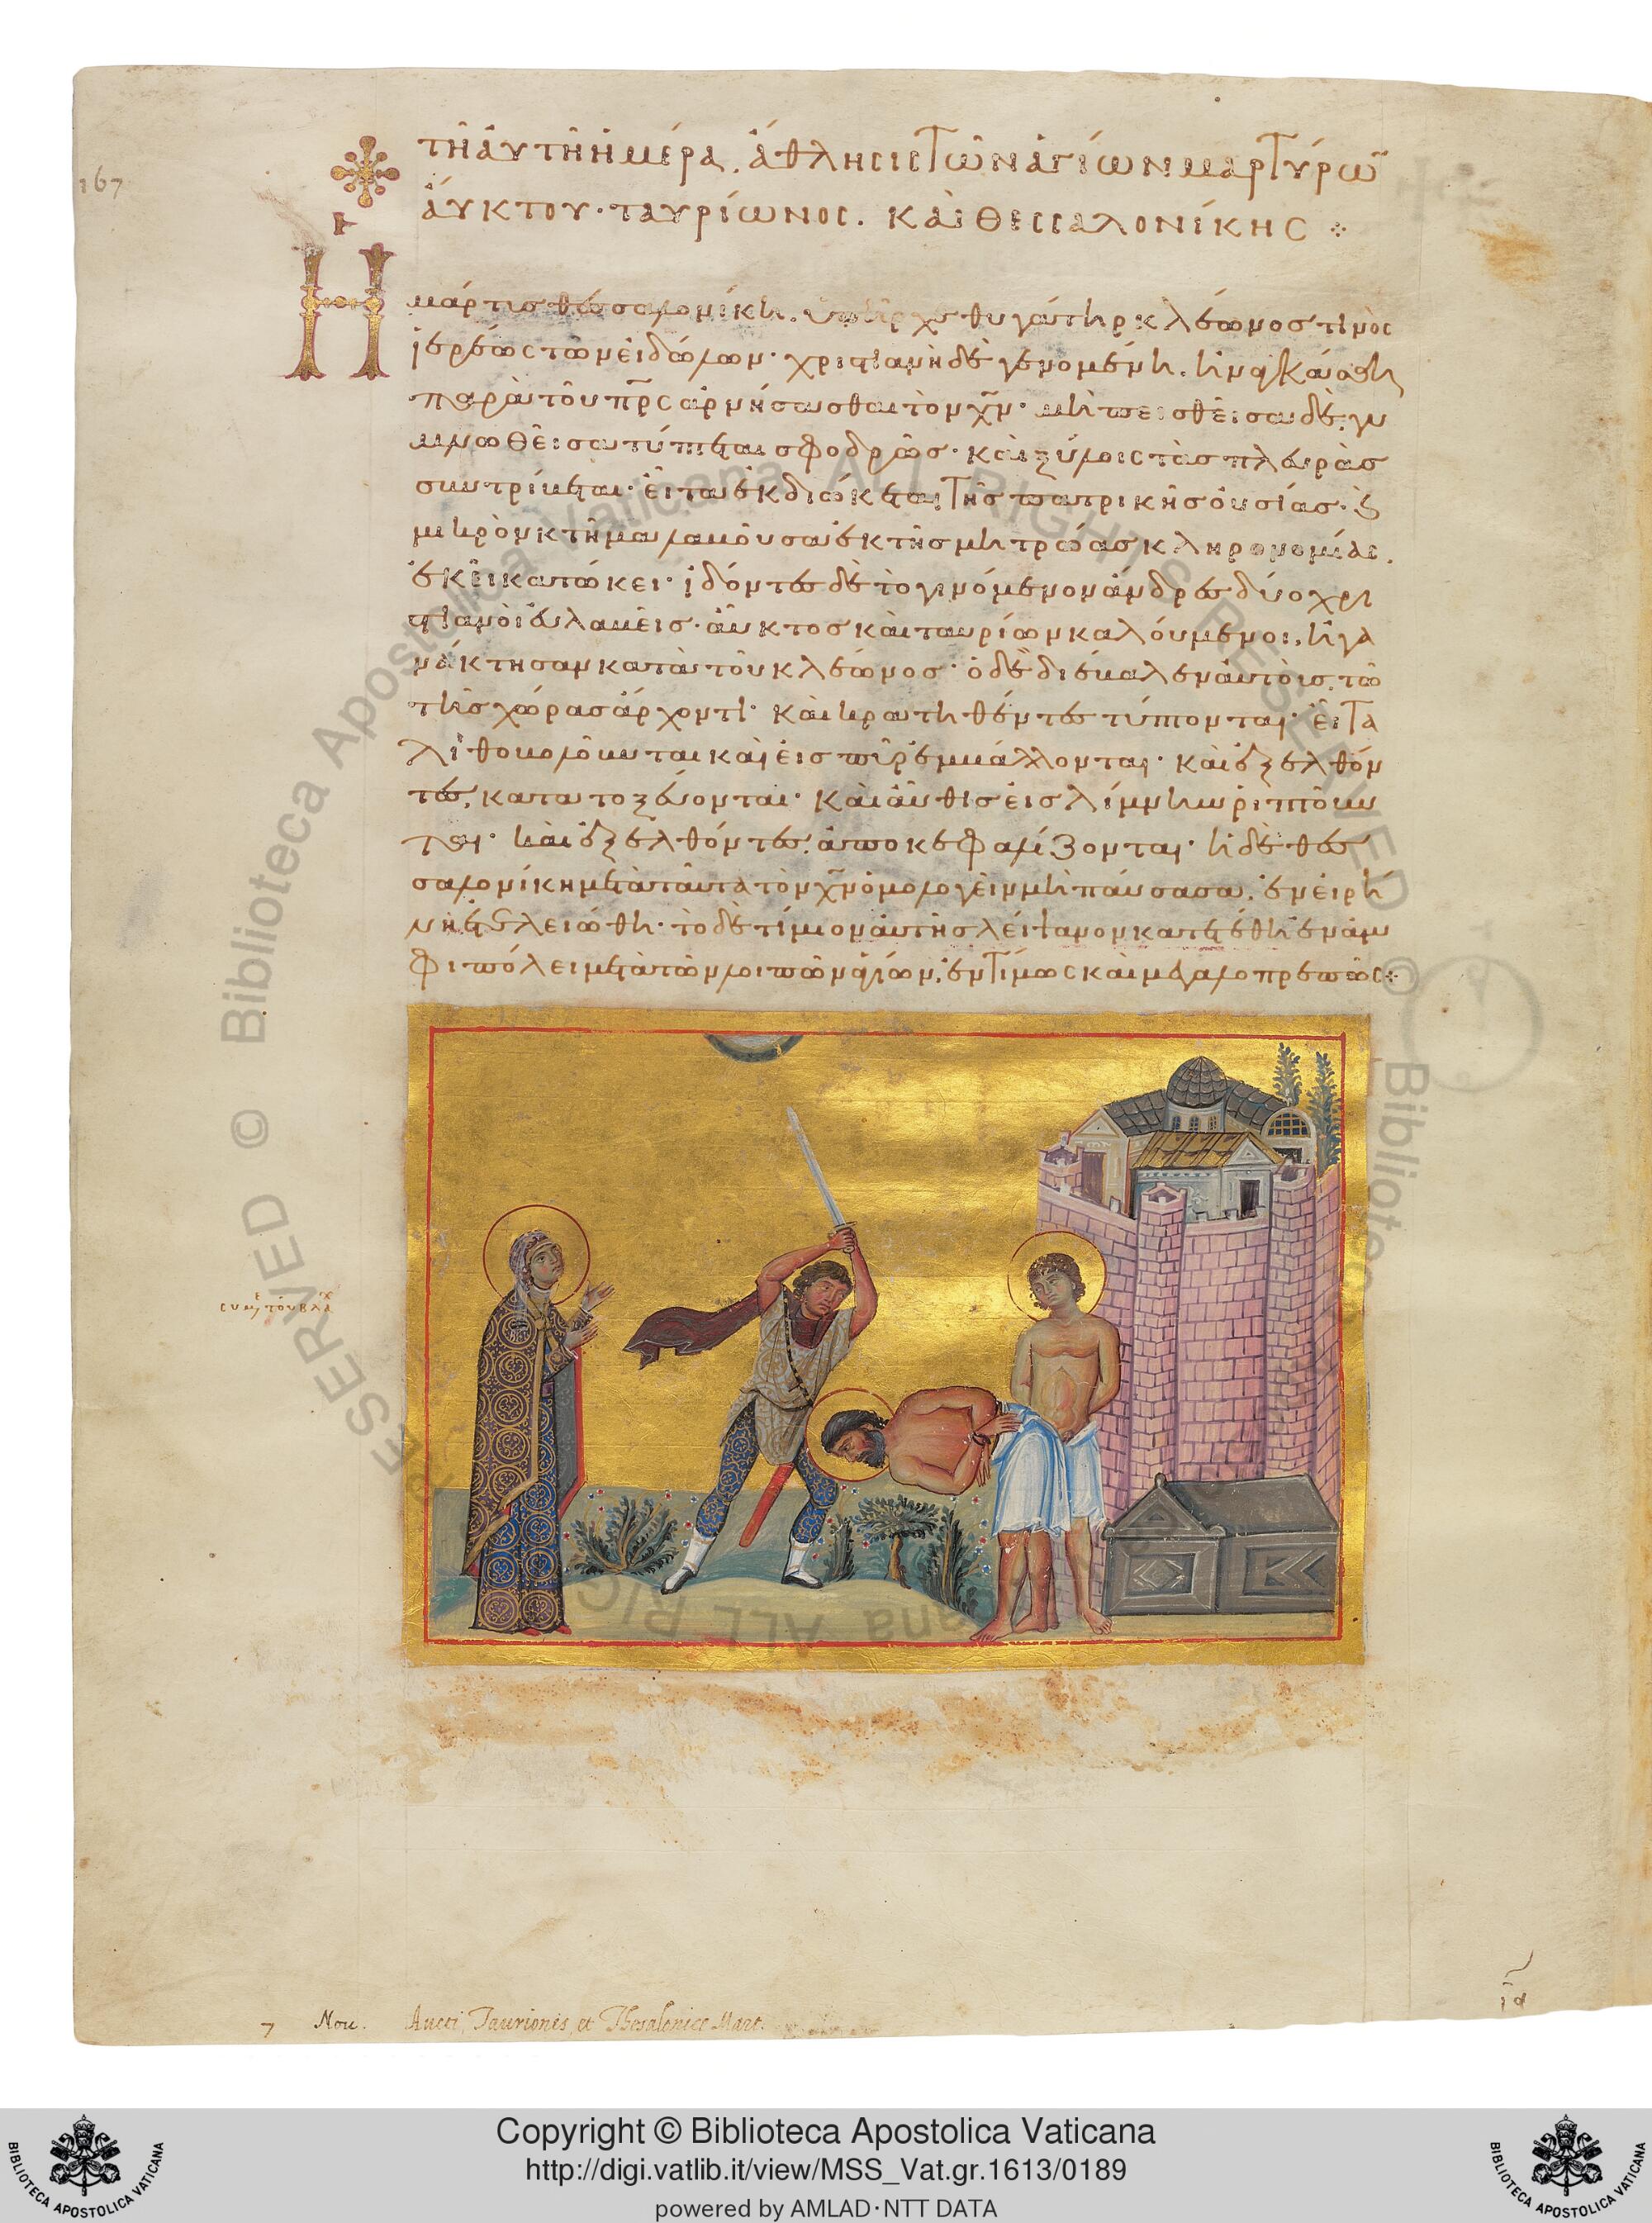 167
τῇ ἀυτῇ ἡμέρα. ἄθλησις τῶν ἁγίων μαρτύρω̅
ἄυκτου· ταυρίωνος. καὶ θεσσαλονίκης
Η μάρτυς θεσσαλονίκη. ὑπῆρχε θυγάτηρ κλέωνος τινὸς
ἱερέως τῶν ἐιδώλων· χριστιανὴ δὲ γενομένη. ἠναγκάσθη
παρὰ τοῦ πρ̅ς ἀρνήσασθαι τὸν χ̅ν· μὴ πεισθεῖσα δὲ, γυ
μνωθεῖσα τύπτεται σφοδρῶς· καὶ ξύλοις τὰς πλευρὰς
συντρίβεται· εἶτα ἐκδιώκεται τῆς πατρικῆς ὀυσίας· καὶ
μικρὸν κτῆμα λαβοῦσα ἐκ τῆς μητρώας κληρονομίας.
ἐκεῖ κατώκει· ἰδόντες δὲ τὸ γινόμενον ἄνδρες δύο χρι
στιανοὶ ἐυλαβεῖς· ἄυκτος καὶ ταυρίων καλούμενοι, ἠγα
νάκτησαν κατὰ τοῦ κλέωνος· ὁ δὲ διέβαλεν ἀυτοὺς τῶ
τῆς χώρας ἄρχοντι· καὶ κρατηθέντες τύπτονται· εἶτα
λιθοβολοῦνται καὶ ἐις πῦρ ἐμβάλλονται· καὶ ἐξελθόν
τες, κατατοξεύονται· καὶ ἆυθις ἐις λίμνην ῥιπτοῦν
ται· καὶ ἐξελθόντες ἀποκεφαλίζονται· ἡ δὲ θεσ
σαλονίκη μετὰ ταῦτα τὸν χ̅ν ὁμολογεῖν μὴ παύσασα, ἐν ἐιρή
νη ἐτελειώθη· τὸ δὲ τίμιον ἀυτῆς λείψανον κατετέθη ἐν ἀμ
φιπόλει μετὰ τῶν λοιπῶν ἁγίων, ἐντίμως καὶ μεγαλοπρεπῶς
συμε̣ τοῦ βλαχ
7 Nou. Aucti Taurionis et Thesalonice Mart.
Copyright © Biblioteca Apostolica Vaticana
http://digi.vatlib.it/view/MSS_Vat.gr.1613/0189
powered by AMLAD·NTT DATA
BIBLIOTECA APOSTOLICA VATICANA
BIBLIOTECA APOSTOLICA VATICANA